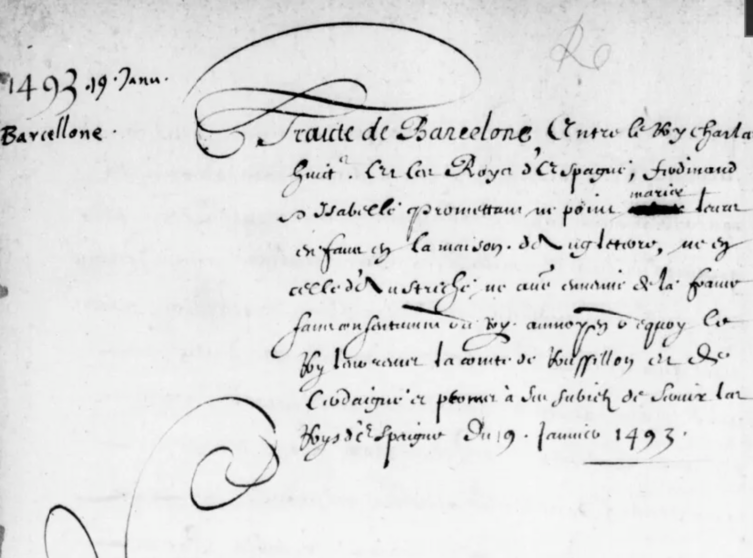 1493 .19. Janu.
Barcellone.
Traicte de Barcelone Entre le Roy Charles
huict. Et les Roys d'Espagne, Ferdinand
Isabelle promettans ne point marier leurs
enfans en la maison d'Angleterre, ne en
celle d'Austriche, ne avec ennemis de la france
sans consentement du Roy. moyen de quoy le
Roy leur remet la comté de Roussillon et de
Cerdaigne et promet à ses subietz de servir les
Roys d'Espaigne Du 19. Janvier 1493.